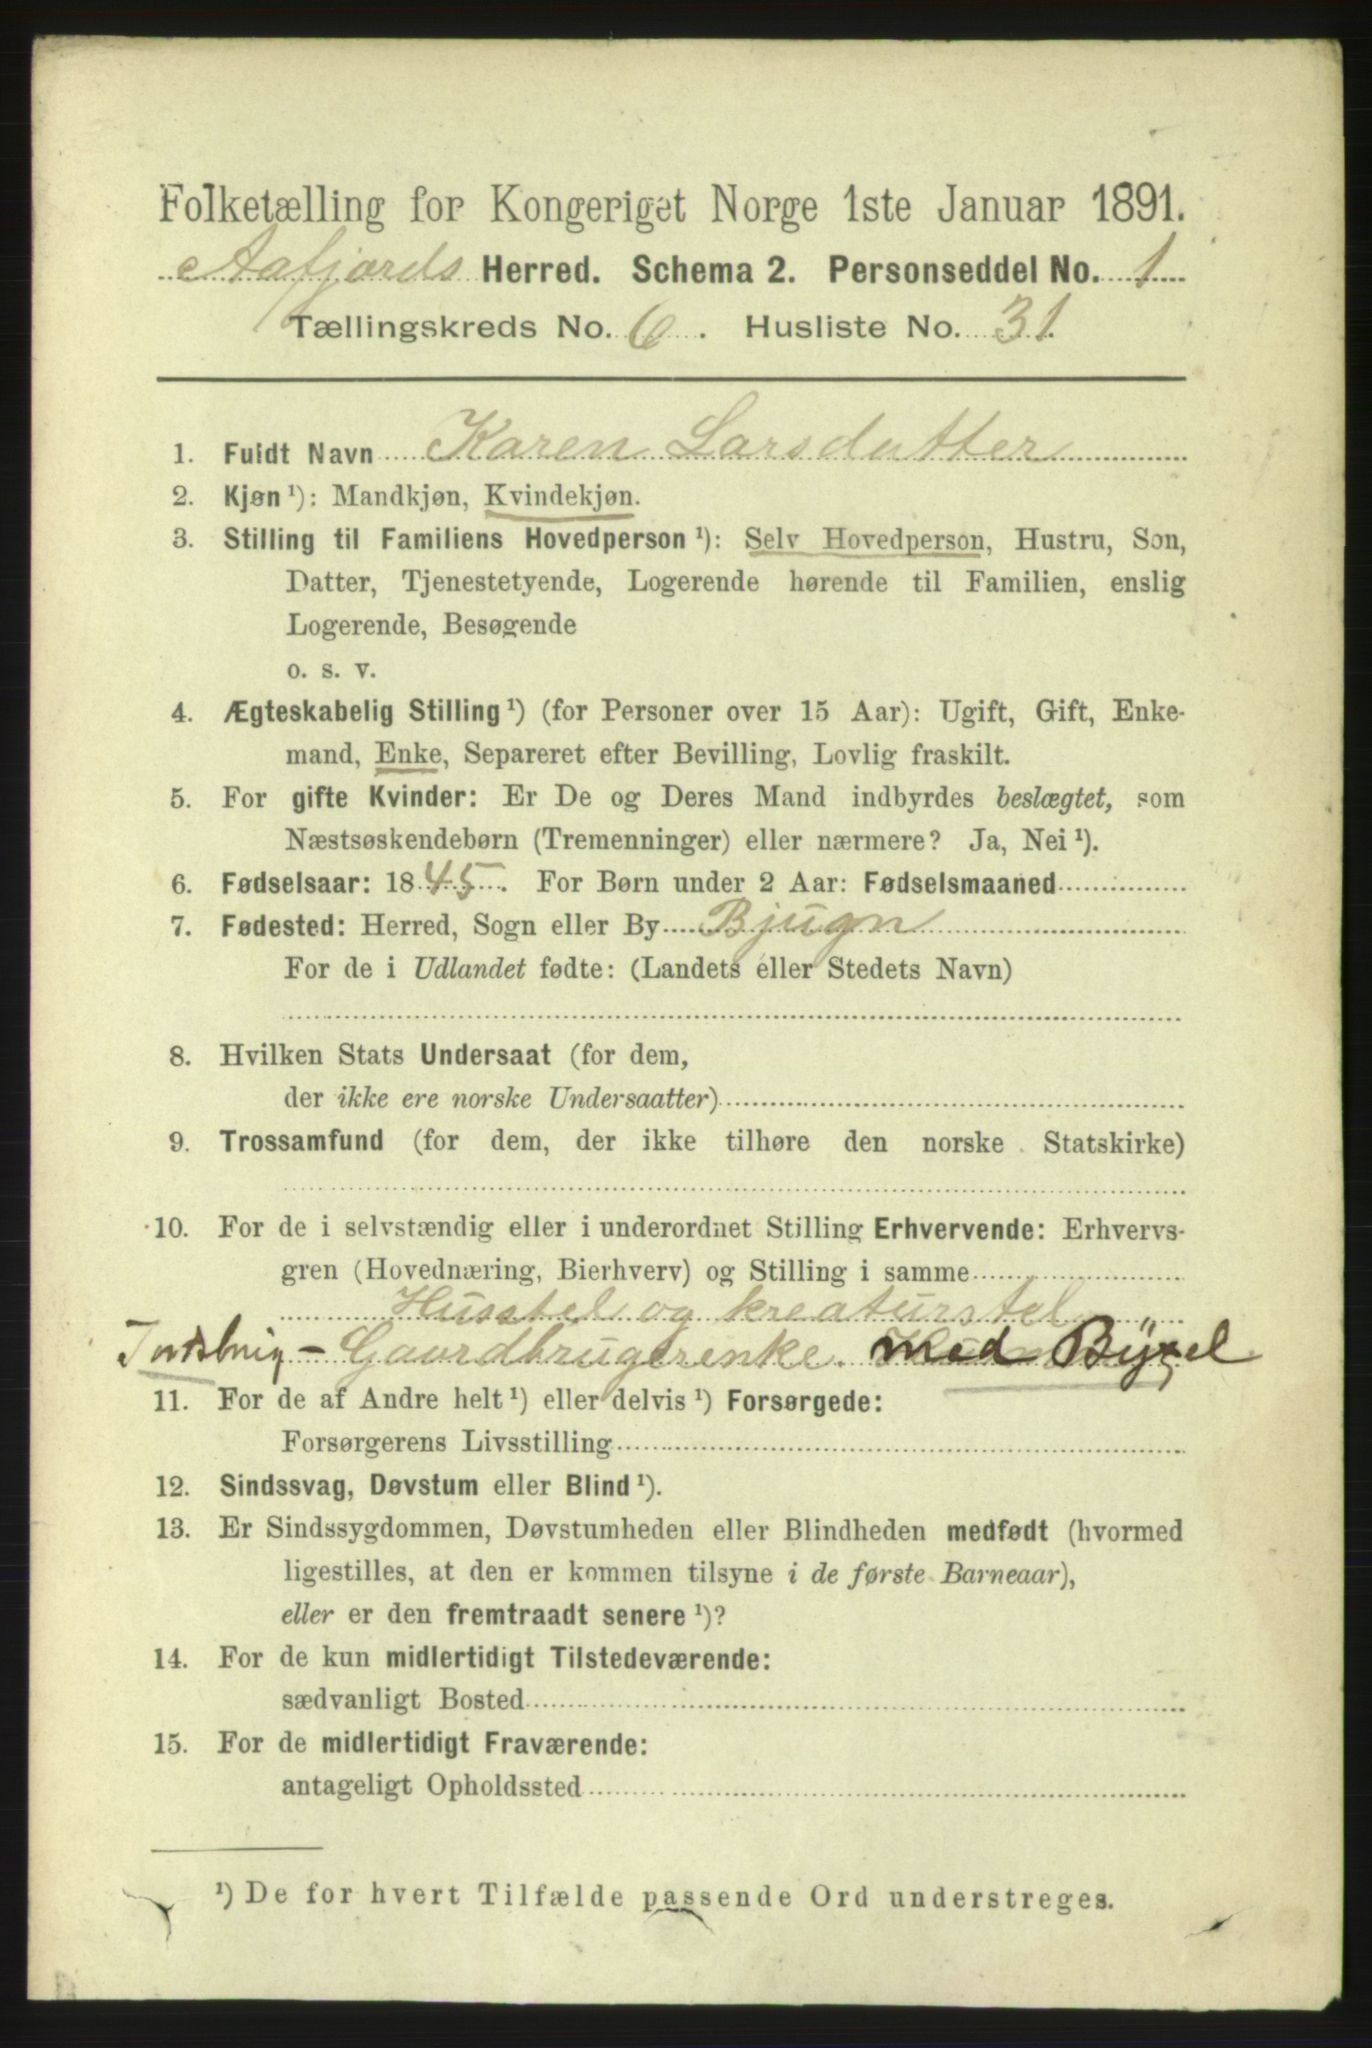 Folketælling for Kongeriget Norge 1ste Januar 1891.
Aafjords Herred. Schema 2. Personseddel No. 1
Tællingskreds No. 6. Husliste No. 31.
1. Fuldt Navn Karen Larsdatter
2. Kjøn ¹): Mandkjøn, Kvindekjøn.
3. Stilling til Familiens Hovedperson ¹): Selv Hovedperson, Hustru, Søn,
Datter, Tjenestetyende, Logerende hørende til Familien, enslig
Logerende, Besøgende
o. s. v.
4. Ægteskabelig Stilling ¹) (for Personer over 15 Aar): Ugift, Gift, Enke-
mand, Enke, Separeret efter Bevilling, Lovlig fraskilt.
5. For gifte Kvinder: Er De og Deres Mand indbyrdes beslægtet, som
Næstsøskendebørn (Tremenninger) eller nærmere? Ja, Nei ¹).
6. Fødselsaar: 1845. For Børn under 2 Aar: Fødselsmaaned
7. Fødested: Herred, Sogn eller By Bjugn
For de i Udlandet fødte: (Landets eller Stedets Navn)
8. Hvilken Stats Undersaat (for dem,
der ikke ere norske Undersaatter)
9. Trossamfund (for dem, der ikke tilhøre den norske Statskirke)
10. For de i selvstændig eller i underordnet Stilling Erhvervende: Erhvervs-
gren (Hovednæring, Bierhverv) og Stilling i samme
Husstel og kreaturstel
Jordsbrug - Gaardbrugerenke. med Byxel
11. For de af Andre helt ¹) eller delvis ¹) Forsørgede:
Forsørgerens Livsstilling
12. Sindssvag, Døvstum eller Blind ¹).
13. Er Sindssygdommen, Døvstumheden eller Blindheden medfødt (hvormed
ligestilles, at den er kommen tilsyne i de første Barneaar),
eller er den fremtraadt senere ¹)?
14. For de kun midlertidigt Tilstedeværende:
sædvanligt Bosted
15. For de midlertidigt Fraværende:
antageligt Opholdssted
¹) De for hvert Tilfælde passende Ord understreges.